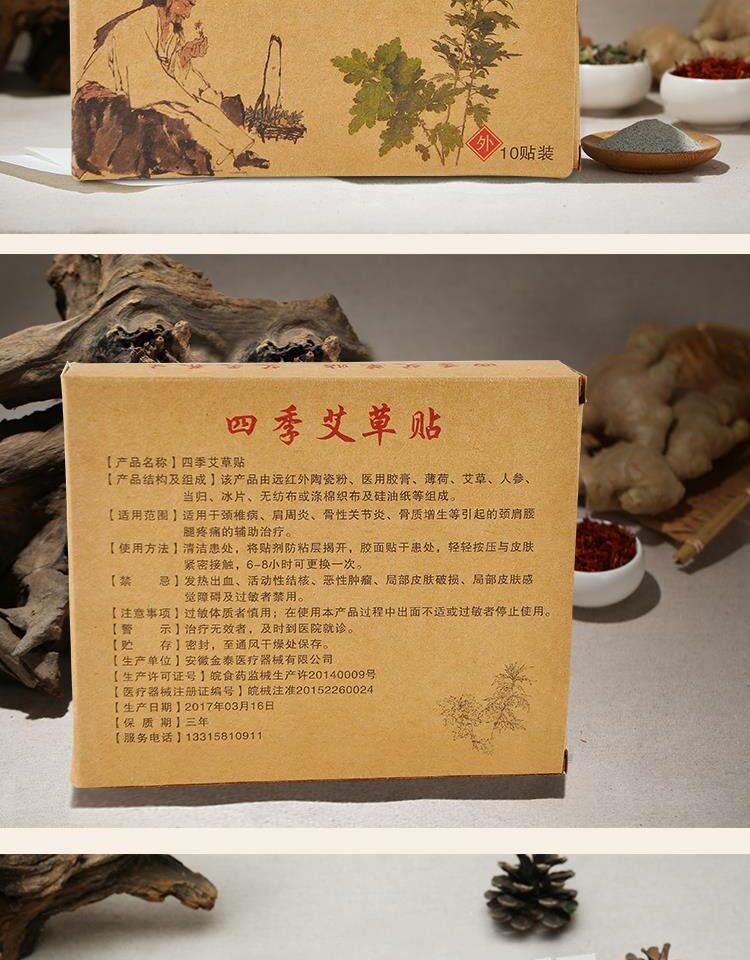 外
10贴装
四季艾草贴
四季艾草贴
【产品名称】四季艾草贴
【产品结构及组成】该产品由远红外陶瓷粉、医用胶膏、薄荷、艾草、人参、
当归、冰片、无纺布或涤棉织布及硅油纸等组成。
【适用范围】适用于颈椎病、肩周炎、骨性关节炎、骨质增生等引起的颈肩腰
腿疼痛的辅助治疗。
【使用方法】清洁患处，将贴剂防粘层揭开，胶面贴于患处，轻轻按压与皮肤
紧密接触，6-8小时可更换一次。
【禁 忌】发热出血、活动性结核、恶性肿瘤、局部皮肤破损、局部皮肤感
觉障碍及过敏者禁用。
【注意事项】过敏体质者慎用；在使用本产品过程中出面不适或过敏者停止使用。
【警 示】治疗无效者，及时到医院就诊。
【贮 存】密封，至通风干燥处保存。
【生产单位】安徽金泰医疗器械有限公司
【生产许可证号】皖食药监械生产许20140009号
【医疗器械注册证编号】皖械注准20152260024
【生产日期】2017年03月16日
【保 质 期】三年
【服务电话】13315810911